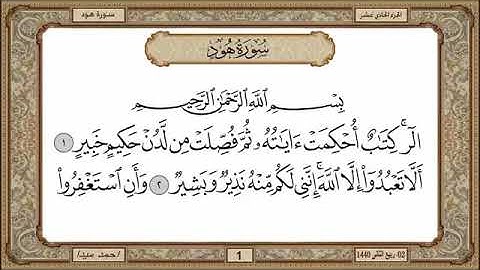 سورة هود
الجزء الحادي عشر
سُورَةُ هُود
بِسْمِ اللَّهِ الرَّحْمَٰنِ الرَّحِيمِ
الٓر ۚ كِتَابٌ أُحْكِمَتْ ءَايَاتُهُۥ ثُمَّ فُصِّلَتْ مِن لَّدُنْ حَكِيمٍ خَبِيرٍ ١
أَلَّا تَعْبُدُوٓا۟ إِلَّا اللَّهَ ۚ إِنَّنِى لَكُم مِّنْهُ نَذِيرٌ وَبَشِيرٌ ٢ وَأَنِ اسْتَغْفِرُوا۟
1
02- ربيع الثاني 1440